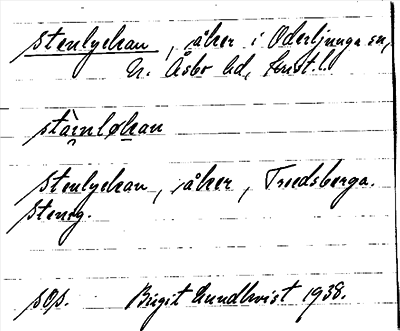 Stenlyckan, åker i Oderljunga sn,
N. Åsbo hd, Krist. l.
stàinløkan
Stenlyckan, åker, Troedsberga.
Stenig.
pop. Birgit Lundkvist 1938.